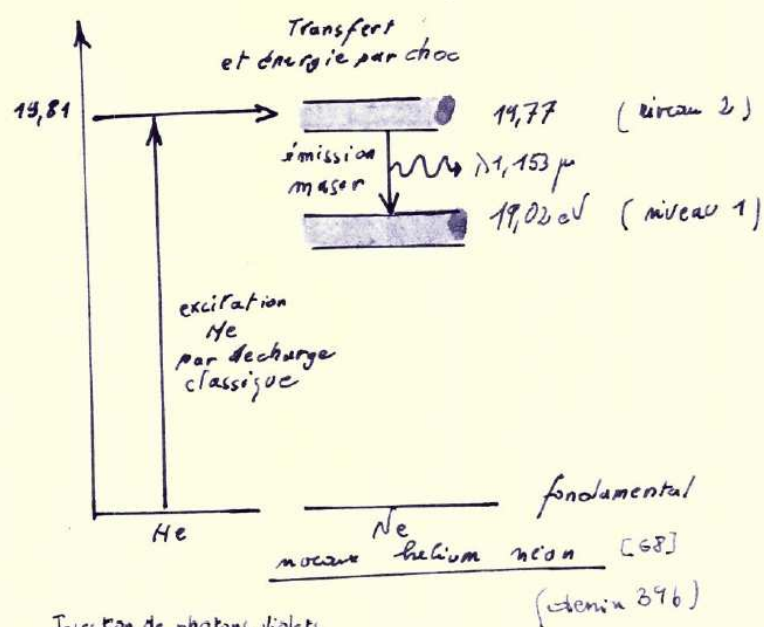 Transfert
et énergie par choc
19,81
19,77 (niveau 2)
émission
maser
λ1,153 μ
19,02 eV (niveau 1)
excitation
He
par decharge
classique
fondamental
He
Ne
helium néon [68]
396)
Injection de photons violets